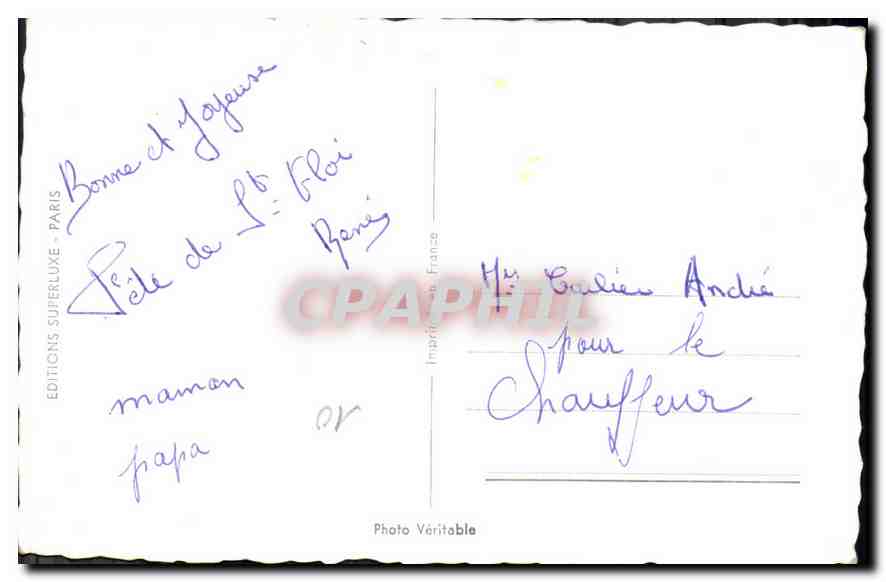 Bonne et Joyeuse
Fête de St. Eloi
René
maman
papa
EDITIONS SUPERLUXE - PARIS
Imprimé en France
CPAPHIL
Mr André
pour le
Chauffeur
Photo Véritable